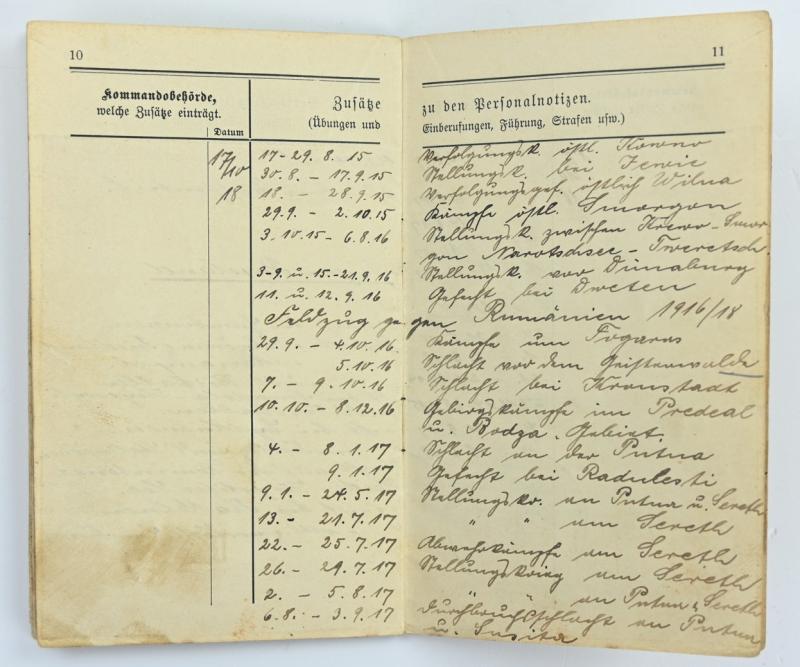 10
11
Kommandobehörde,
welche Zusätze einträgt.
Datum
Zusätze
(Übungen und
zu den Personalnotizen.
Einberufungen, Führung, Strafen usw.)
17/10 18
17-29. 8. 15 Verfolgungsk. östl. Kowno
30.8. - 17.9.15 Stellungsk. bei Jewie
18. - 28.9.15 Verfolgungsgef. östlich Wilna
29.9. - 2.10.15. Kämpfe östl. Smorgon
3.10.15 - 6.8.16 Stellungsk. zwischen Krewo - Smor-
gon Narotschsee - Tweretsch.
3-9. u. 15.-21.9.16 Stellungsk. vor Dünaburg
11. u. 12. 9. 16 Gefecht bei Dweten
Feldzug gegen Rumänien 1916/18
29.9. - 4.10.16. Kämpfe um Fogaras
5.10.16 Schlacht vor dem Geisterwalde
7. - 9.10.16 Schlacht bei Kronstadt
10.10. - 8.12.16 Gebirgskämpfe im Predeal
u. Bodza. Gebiet.
4. - 8.1.17 Schlacht an der Putna
9.1.17 Gefecht bei Radulesti
9.1. - 24.5.17 Stellungskr. an Putna u. Sereth
13. - 21.7.17 " " am Sereth
22. - 25.7.17 Abwehrkämpfe am Sereth
26. - 29.7.17 Stellungskrieg am Sereth
2. - 5.8.17 " an Putna u. Sereth
6.8. - 3.9.17 Durchbruchschlacht an Putna
u. Susita